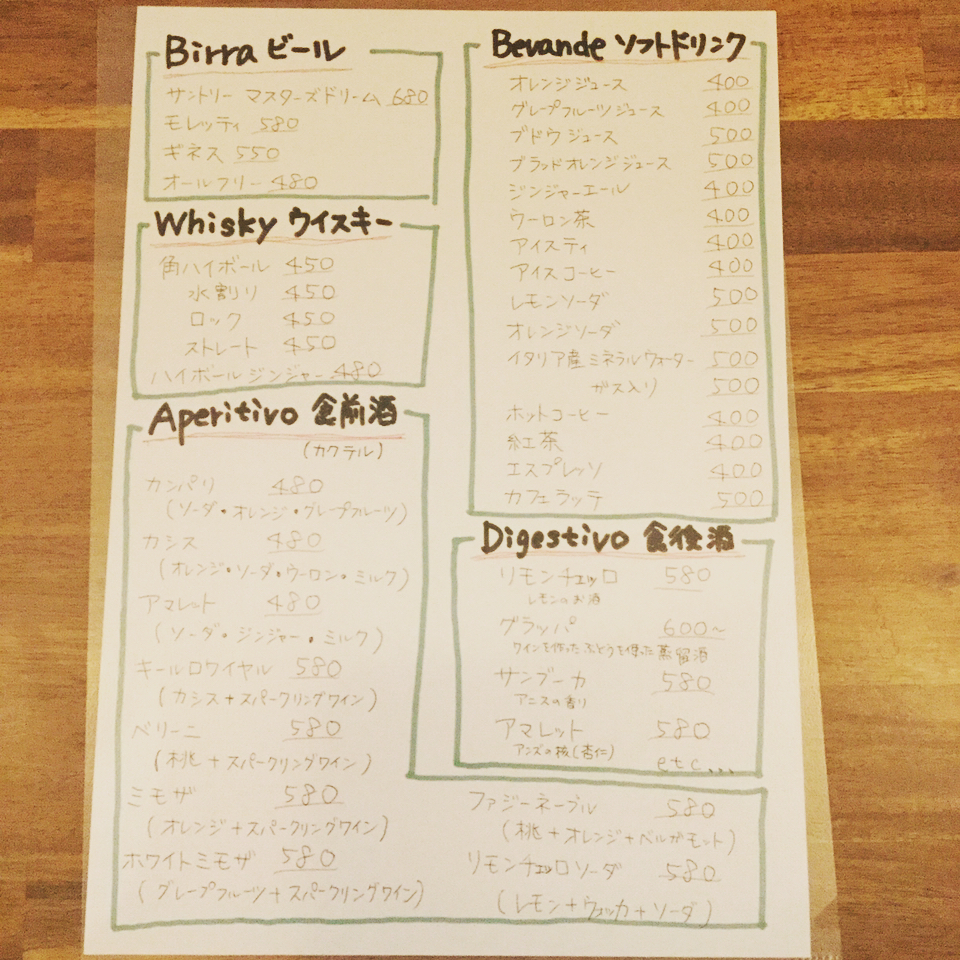 Birra ビール
サントリー マスターズドリーム 680
モレッティ 580
ギネス 550
オールフリー 480
Whisky ウイスキー
角ハイボール 450
水割り 450
ロック 450
ストレート 450
ハイボールジンジャー 480
Aperitivo 食前酒
(カクテル)
カンパリ 480
(ソーダ・オレンジ・グレープフルーツ)
カシス 480
(オレンジ・ソーダ・ウーロン・ミルク)
アマレット 480
(ソーダ・ジンジャー・ミルク)
キールロワイヤル 580
(カシス+スパークリングワイン)
ベリーニ 580
(桃+スパークリングワイン)
ミモザ 580
(オレンジ+スパークリングワイン)
ホワイトミモザ 580
(グレープフルーツ+スパークリングワイン)
ファジーネーブル 580
(桃+オレンジ+ベルガモット)
リモンチェッロソーダ 580
(レモン+ウォッカ+ソーダ)
Bevande ソフトドリンク
オレンジジュース 400
グレープフルーツジュース 400
ブドウジュース 500
ブラッドオレンジジュース 500
ジンジャーエール 400
ウーロン茶 400
アイスティ 400
アイスコーヒー 400
レモンソーダ 500
オレンジソーダ 500
イタリア産ミネラルウォーター 500
ガス入り 500
ホットコーヒー 400
紅茶 400
エスプレッソ 400
カフェラッテ 500
Digestivo 食後酒
リモンチェッロ 580
レモンのお酒
グラッパ 600~
ワインを作ったぶどうを使った蒸留酒
サンブーカ 580
アニスの香り
アマレット 580
アンズの核(杏仁)
etc...